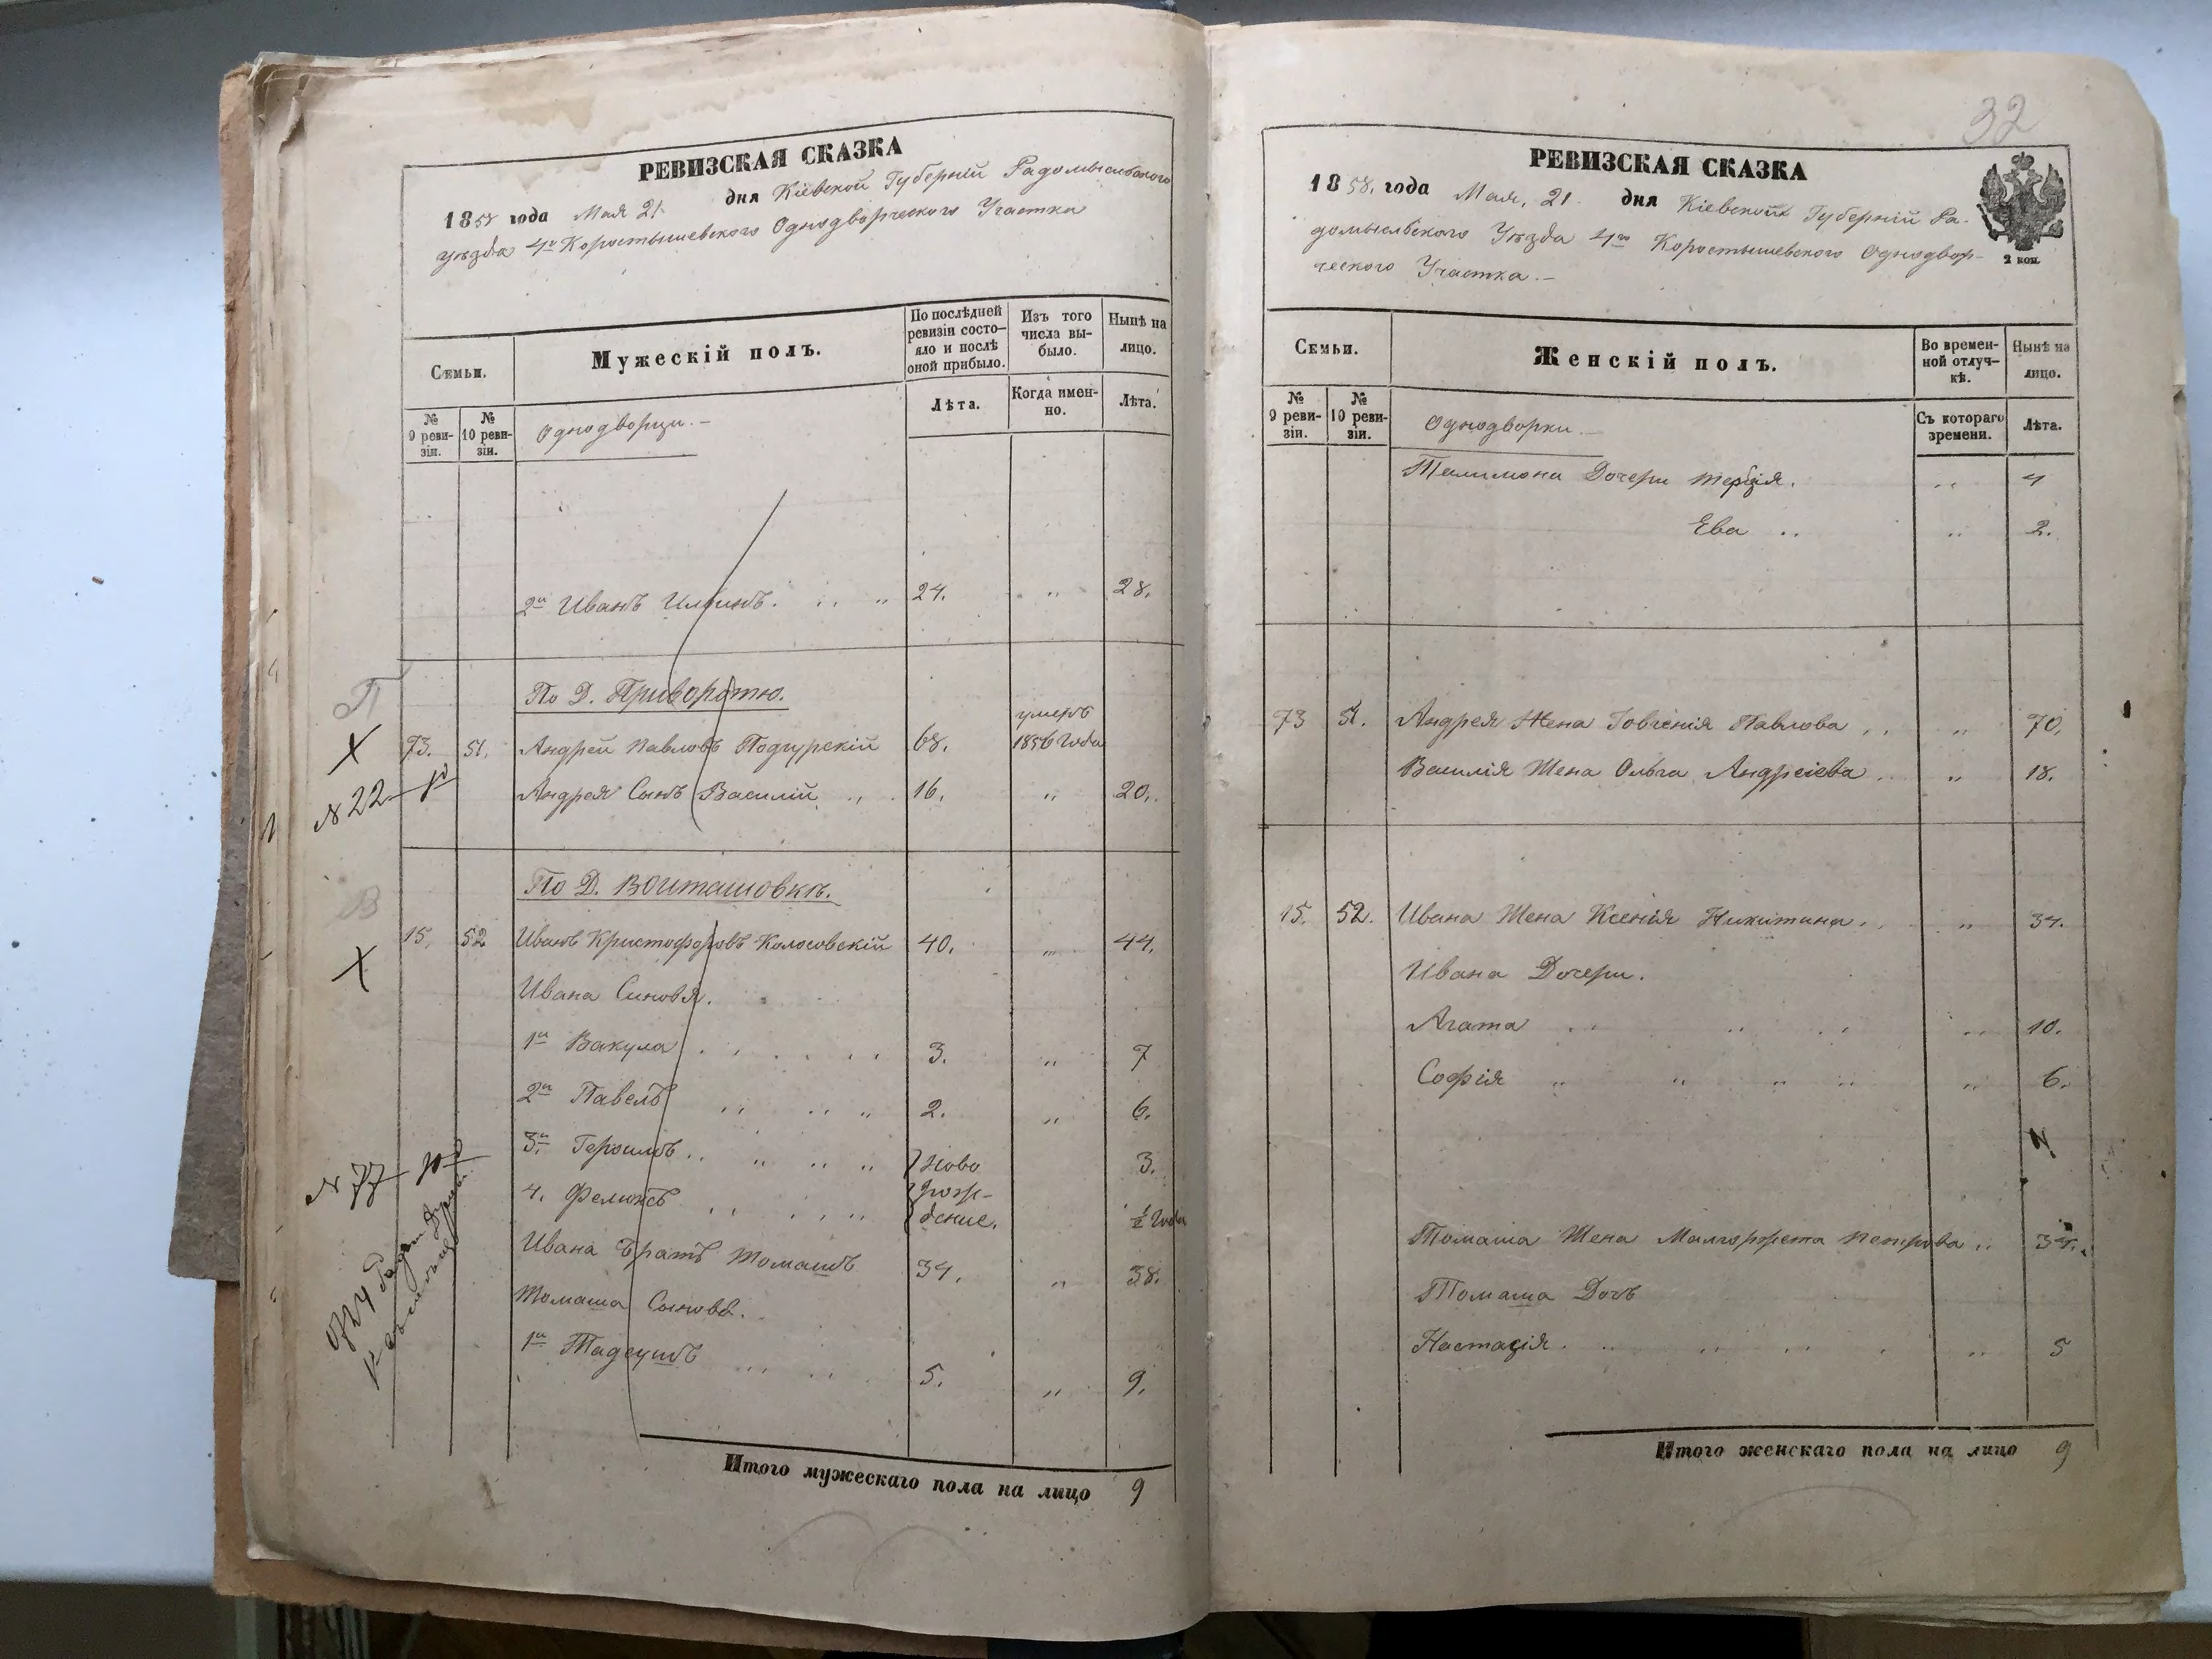 РЕВИЗСКАЯ СКАЗКА
1858 года Мая 21 дня Кіевской Губерніи Радомысльского
уѣзда 4го Коростышевского Однодворческого Участка
Семьи.
Мужескій полъ.
По послѣдней ревизіи состояло и послѣ оной прибыло.
Изъ того числа выбыло.
Нынѣ на лицо.
№ 9 ревизіи.
№ 10 ревизіи.
Однодворци.
Лѣта.
Когда именно.
Лѣта.
2й Иванъ 24. " 28.
По Д. Приворотю.
73. 51. Андрей Павловъ Подгурскій 68. умеръ 1856 года
Андрея Сынъ Василій 16. " 20.
№ 22
По Д. Войташовкѣ.
15. 52 Иванъ Кристофоровъ Колосовскій 40. " 44.
Ивана Синовя.
1й Вакула 3. " 7
2й Павелъ 2. " 6.
3й 3.
4. Феликсъ 1/2 года
Ново рождение.
№ 77
Ивана Братъ Томашъ 34. " 38.
Томаша Сыновя.
1й Тадеушъ 5. " 9.
Итого мужескаго пола на лицо 9
32
РЕВИЗСКАЯ СКАЗКА
1858. года Мая, 21. дня Кіевской Губерніи Ра-
домысльского Уѣзда 4го Коростышевского Однодвор-
ческого Участка.
2 коп.
Семьи.
Женскій полъ.
Во временной отлучкѣ.
Нынѣ на лицо.
№ 9 ревизіи.
№ 10 ревизіи.
Однодворки
Съ котораго времени.
Лѣта.
Дочери 4
Ева " 2.
73 51. Андрея Жена Павлова " 70.
Василія Жена Ольга Андреіева " 18.
15. 52. Ивана Жена Ксенія Никитина " 34.
Ивана Дочери.
Агата " 10.
Софія " 6.
Томаша Жена Малгоржета Петрова " 34.
Томаша Дочъ
Настазія " 5
Итого женскаго пола на лицо 9